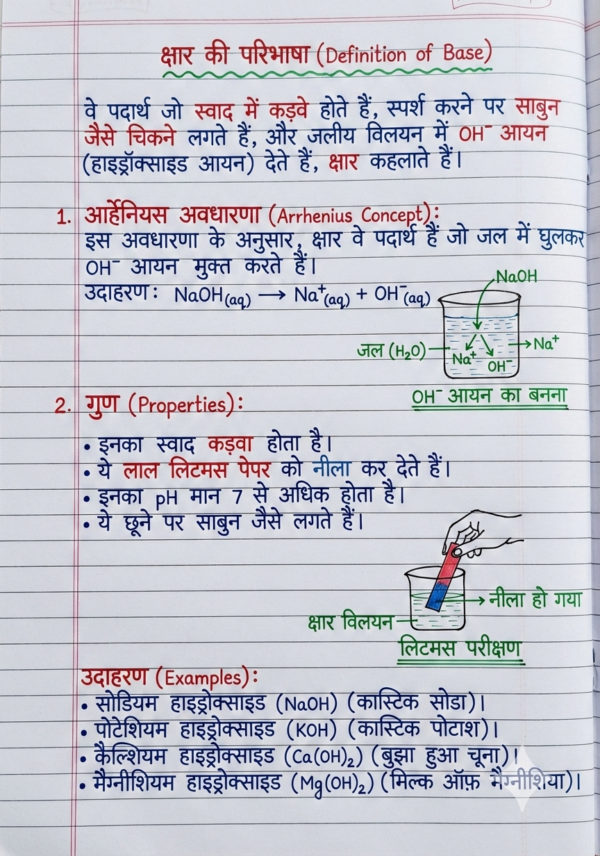 क्षार की परिभाषा (Definition of Base)
वे पदार्थ जो स्वाद में कड़वे होते हैं, स्पर्श करने पर साबुन
जैसे चिकने लगते हैं, और जलीय विलयन में OH⁻ आयन
(हाइड्रॉक्साइड आयन) देते हैं, क्षार कहलाते हैं।
1. आर्हेनियस अवधारणा (Arrhenius Concept):
इस अवधारणा के अनुसार, क्षार वे पदार्थ हैं जो जल में घुलकर
OH⁻ आयन मुक्त करते हैं।
उदाहरण: NaOH(aq) → Na⁺(aq) + OH⁻(aq)
NaOH
जल (H₂O)
Na⁺
OH⁻
Na⁺
OH⁻ आयन का बनना
2. गुण (Properties):
• इनका स्वाद कड़वा होता है।
• ये लाल लिटमस पेपर को नीला कर देते हैं।
• इनका pH मान 7 से अधिक होता है।
• ये छूने पर साबुन जैसे लगते हैं।
नीला हो गया
क्षार विलयन
लिटमस परीक्षण
उदाहरण (Examples):
• सोडियम हाइड्रोक्साइड (NaOH) (कास्टिक सोडा)।
• पोटेशियम हाइड्रोक्साइड (KOH) (कास्टिक पोटाश)।
• कैल्शियम हाइड्रोक्साइड (Ca(OH)₂) (बुझा हुआ चूना)।
• मैग्नीशियम हाइड्रोक्साइड (Mg(OH)₂) (मिल्क ऑफ़ मैग्नीशिया)।